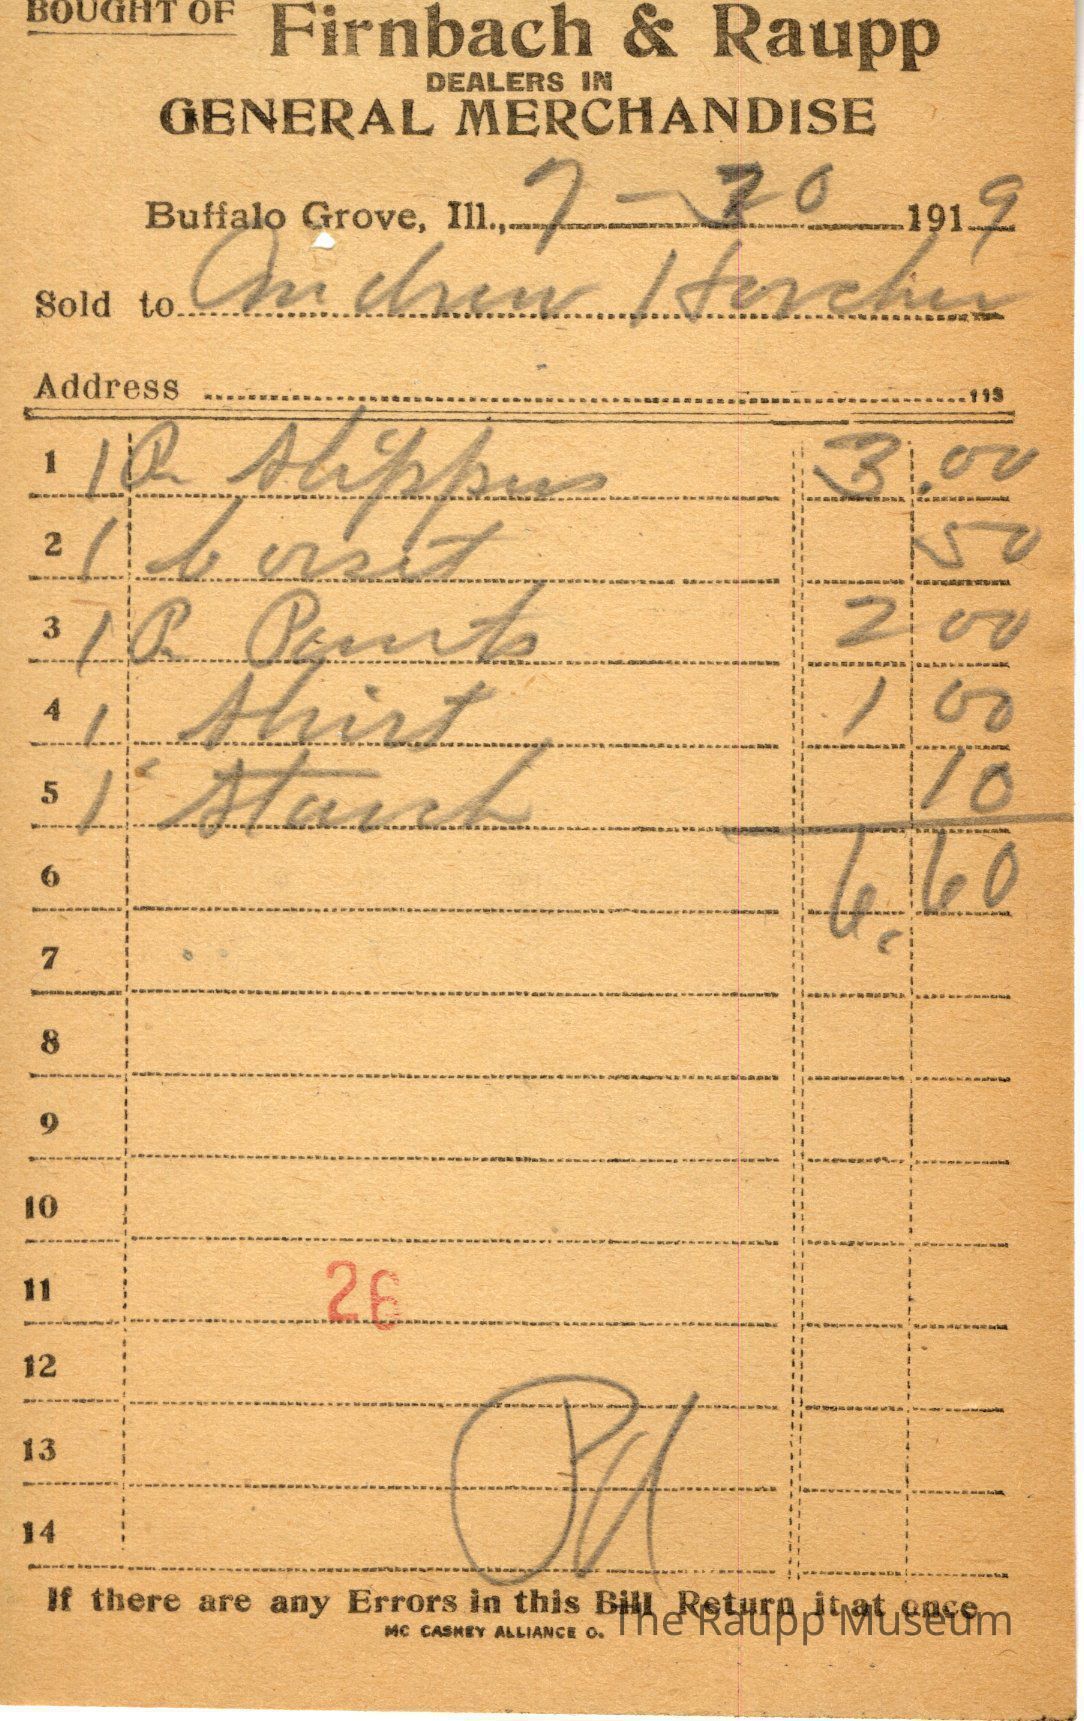 BOUGHT OF Firnbach & Raupp
DEALERS IN
GENERAL MERCHANDISE
Buffalo Grove, Ill., 7-30 1919
Sold to Andrew Horcher
Address 113
1 1 Pr Slippers 3.00
2 1 Corset 50
3 1 Pr Pants 2 00
4 1 Shirt 1 00
5 1 Starch 10
6 6.60
7
8
9
10
11 26
12
13 Pd
14
If there are any Errors in this Bill Return it at once
MC CASKEY ALLIANCE O.
The Raupp Museum